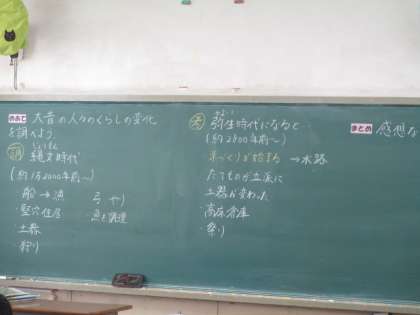 めあて 大昔の人々のくらしの変化
を調べよう
調 縄文時代
じょうもん
(約1万2000年前〜)
船→漁 弓 やり
竪穴住居
土器
狩り
弥生時代になると…
やよい
(約2800年前〜)
米づくりが始まる →水路
たてものが立派に
土器が変わった
高床倉庫
祭り
まとめ 感想な